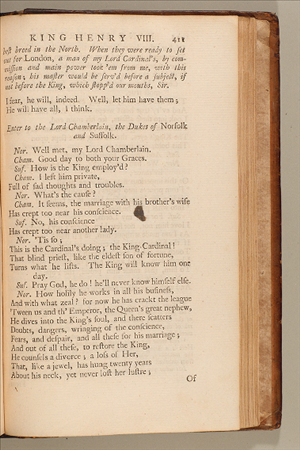 KING HENRY VIII. 411
best breed in the North. When they were ready to set
out for London, a man of my Lord Cardinal's, by com-
mission and main power took 'em from me, with this
reason; his master would be serv'd before a subject, if
not before the King, which stopp'd our mouths, Sir.
I fear, he will, indeed. Well, let him have them;
He will have all, I think.
Enter to the Lord Chamberlain, the Dukes of Norfolk
and Suffolk.
Nor. Well met, my Lord Chamberlain.
Cham. Good day to both your Graces.
Suf. How is the King employ'd?
Cham. I left him private,
Full of sad thoughts and troubles.
Nor. What's the cause?
Cham. It seems, the marriage with his brother's wife
Has crept too near his conscience.
Suf. No, his conscience
Has crept too near another lady.
Nor. 'Tis so;
This is the Cardinal's doing; the King-Cardinal!
That blind priest, like the eldest son of fortune,
Turns what he lists. The King will know him one
day.
Suf. Pray God, he do! he'll never know himself else.
Nor. How holily he works in all his business,
And with what zeal? for now he has crackt the league
'Tween us and th' Emperor, the Queen's great nephew,
He dives into the King's soul, and there scatters
Doubts, dangers, wringing of the conscience,
Fears, and despair, and all these for his marriage;
And out of all these, to restore the King,
He counsels a divorce; a loss of Her,
That, like a jewel, has hung twenty years
About his neck, yet never lost her lustre;
Of